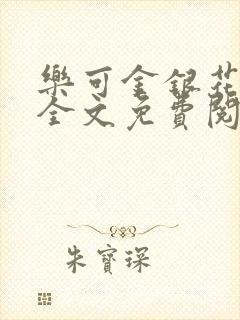 樂可金銀花
全文免費閱
朱寶琛